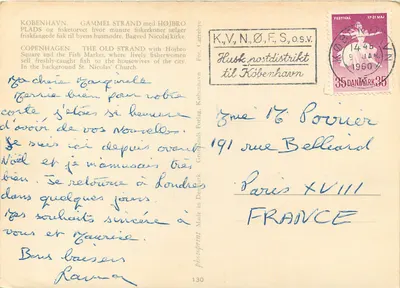 KØBENHAVN GAMMEL STRAND med HØJBRO
PLADS og fisketorvet hvor muntre fiskerkoner sælger
friskfangede fisk til byens husmødre. Bagved Nicolaj kirke.
COPENHAGEN THE OLD STRAND with Højbro
Square and the Fish Market, where lively fisherwomen
sell freshly-caught fish to the housewives of the city
In the background St. Nicolas' Church
Ma chère Marginelle
Merci bien pour votre
carte j'étais si heureuse
d'avoir de vos nouvelles.
Je suis ici depuis avant
Noël et je m'amusais très
bien. Je retourne à Londres
dans quelques jours.
Mes souhaits sincère à
vous et Maurice.
Bons baisers
Made in Denmark
130
K, V, N, Ø, F, S, O.S.V.
Husk postdistrikt
til København
KØBENHAVN
14-45
1960
35 DANMARK 35
Mme M Poirier
191 rue Belliard
Paris XVIII
FRANCE